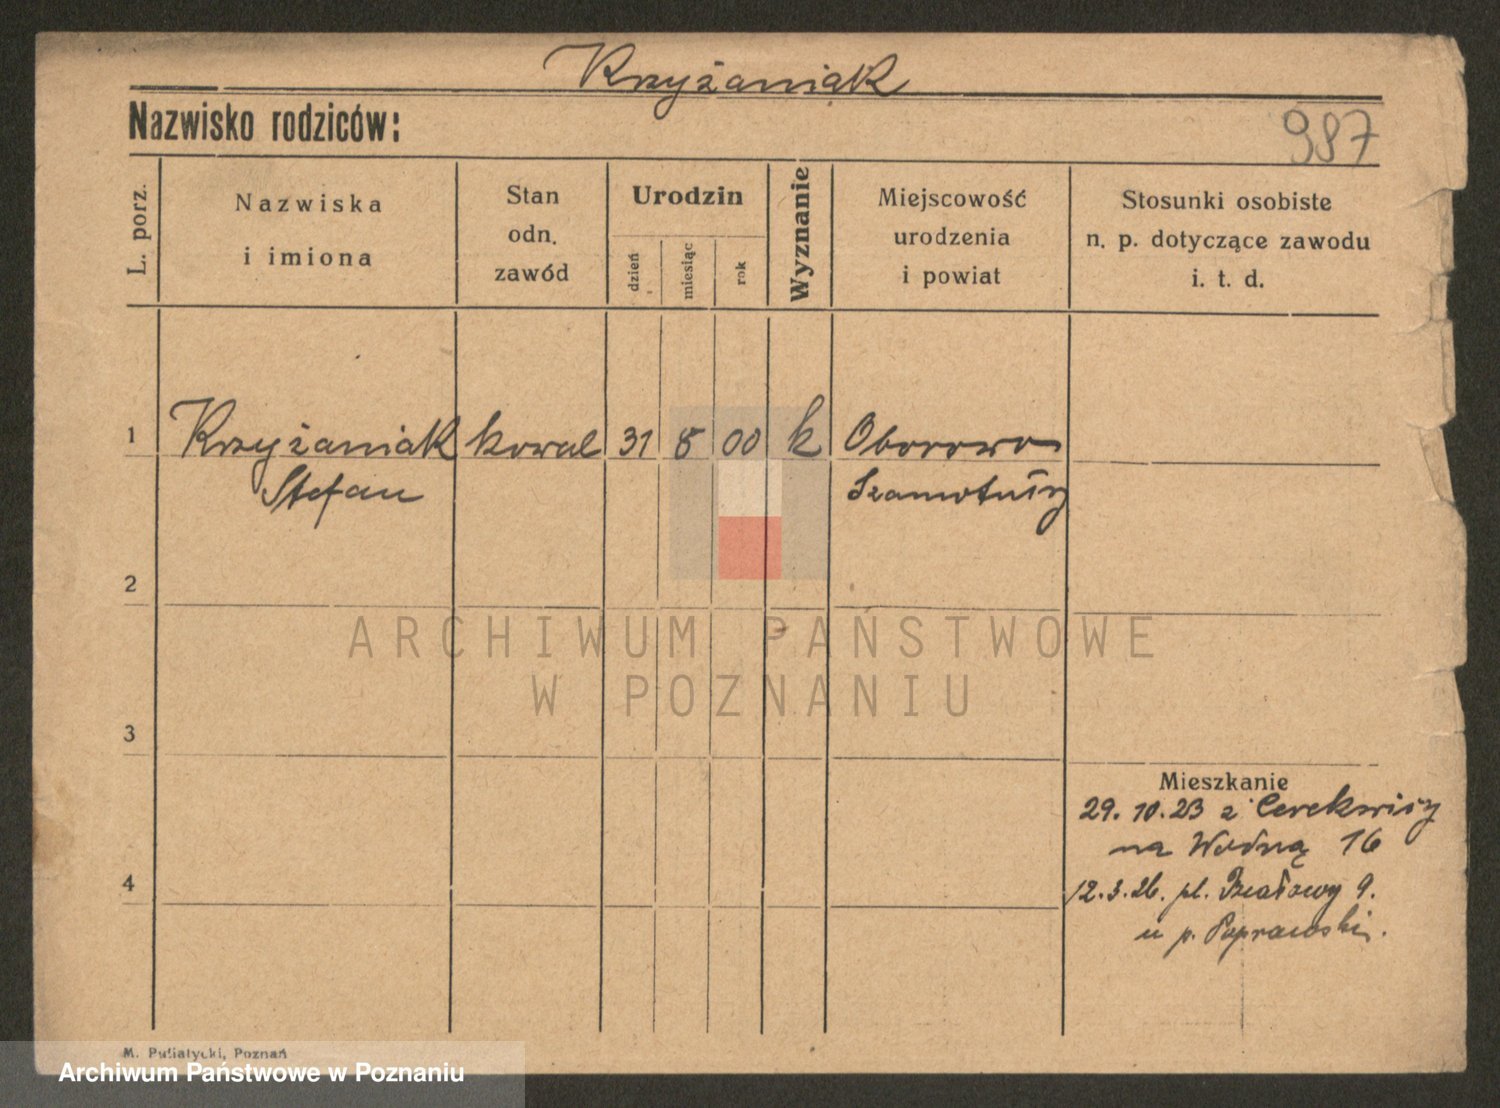 Krzyżaniak
Nazwisko rodziców:
987
L. porz.
Nazwiska
i imiona
Stan
odn.
zawód
Urodzin
dzień
miesiąc
rok
Wyznanie
Miejscowość
urodzenia
i powiat
Stosunki osobiste
n. p. dotyczące zawodu
i. t. d.
1 Krzyżaniak kowal 31 8 00 k Oborowo
Stefan Szamotuły
2
ARCHIWUM PAŃSTWOWE
W POZNANIU
3
Mieszkanie
29.10.23 z Cerekwicy
na Wodną 16
4
12.3.26. pl. Działowy 9.
u p. Poprawski.
M. Pusiatycki, Poznań
Archiwum Państwowe w Poznaniu